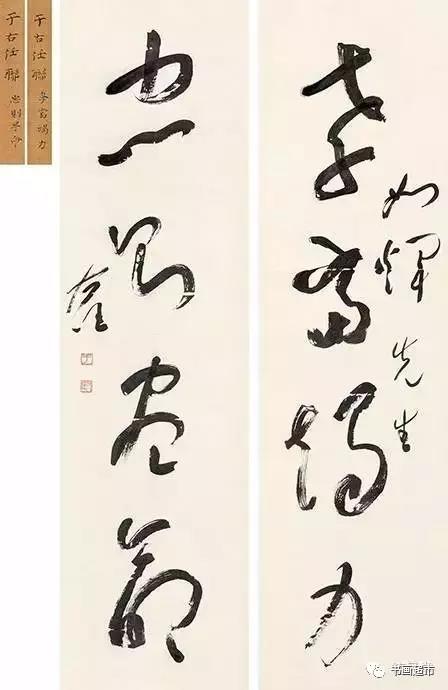 孝當竭力
如煇先生
忠則盡命
右任
于右任聯 孝當竭力
于右任聯
书画超市